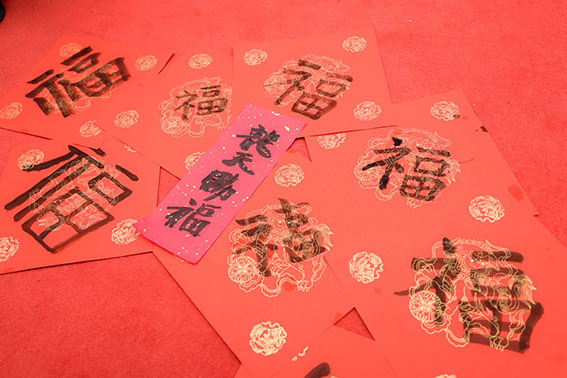 福
福
福
福
福
龍天助福
福
福